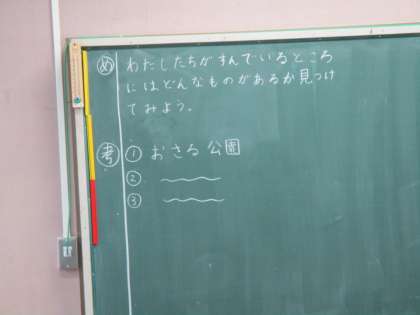 め わたしたちがすんでいるところ
にはどんなものがあるか見つけ
てみよう。
考 ① おさる公園
②
③